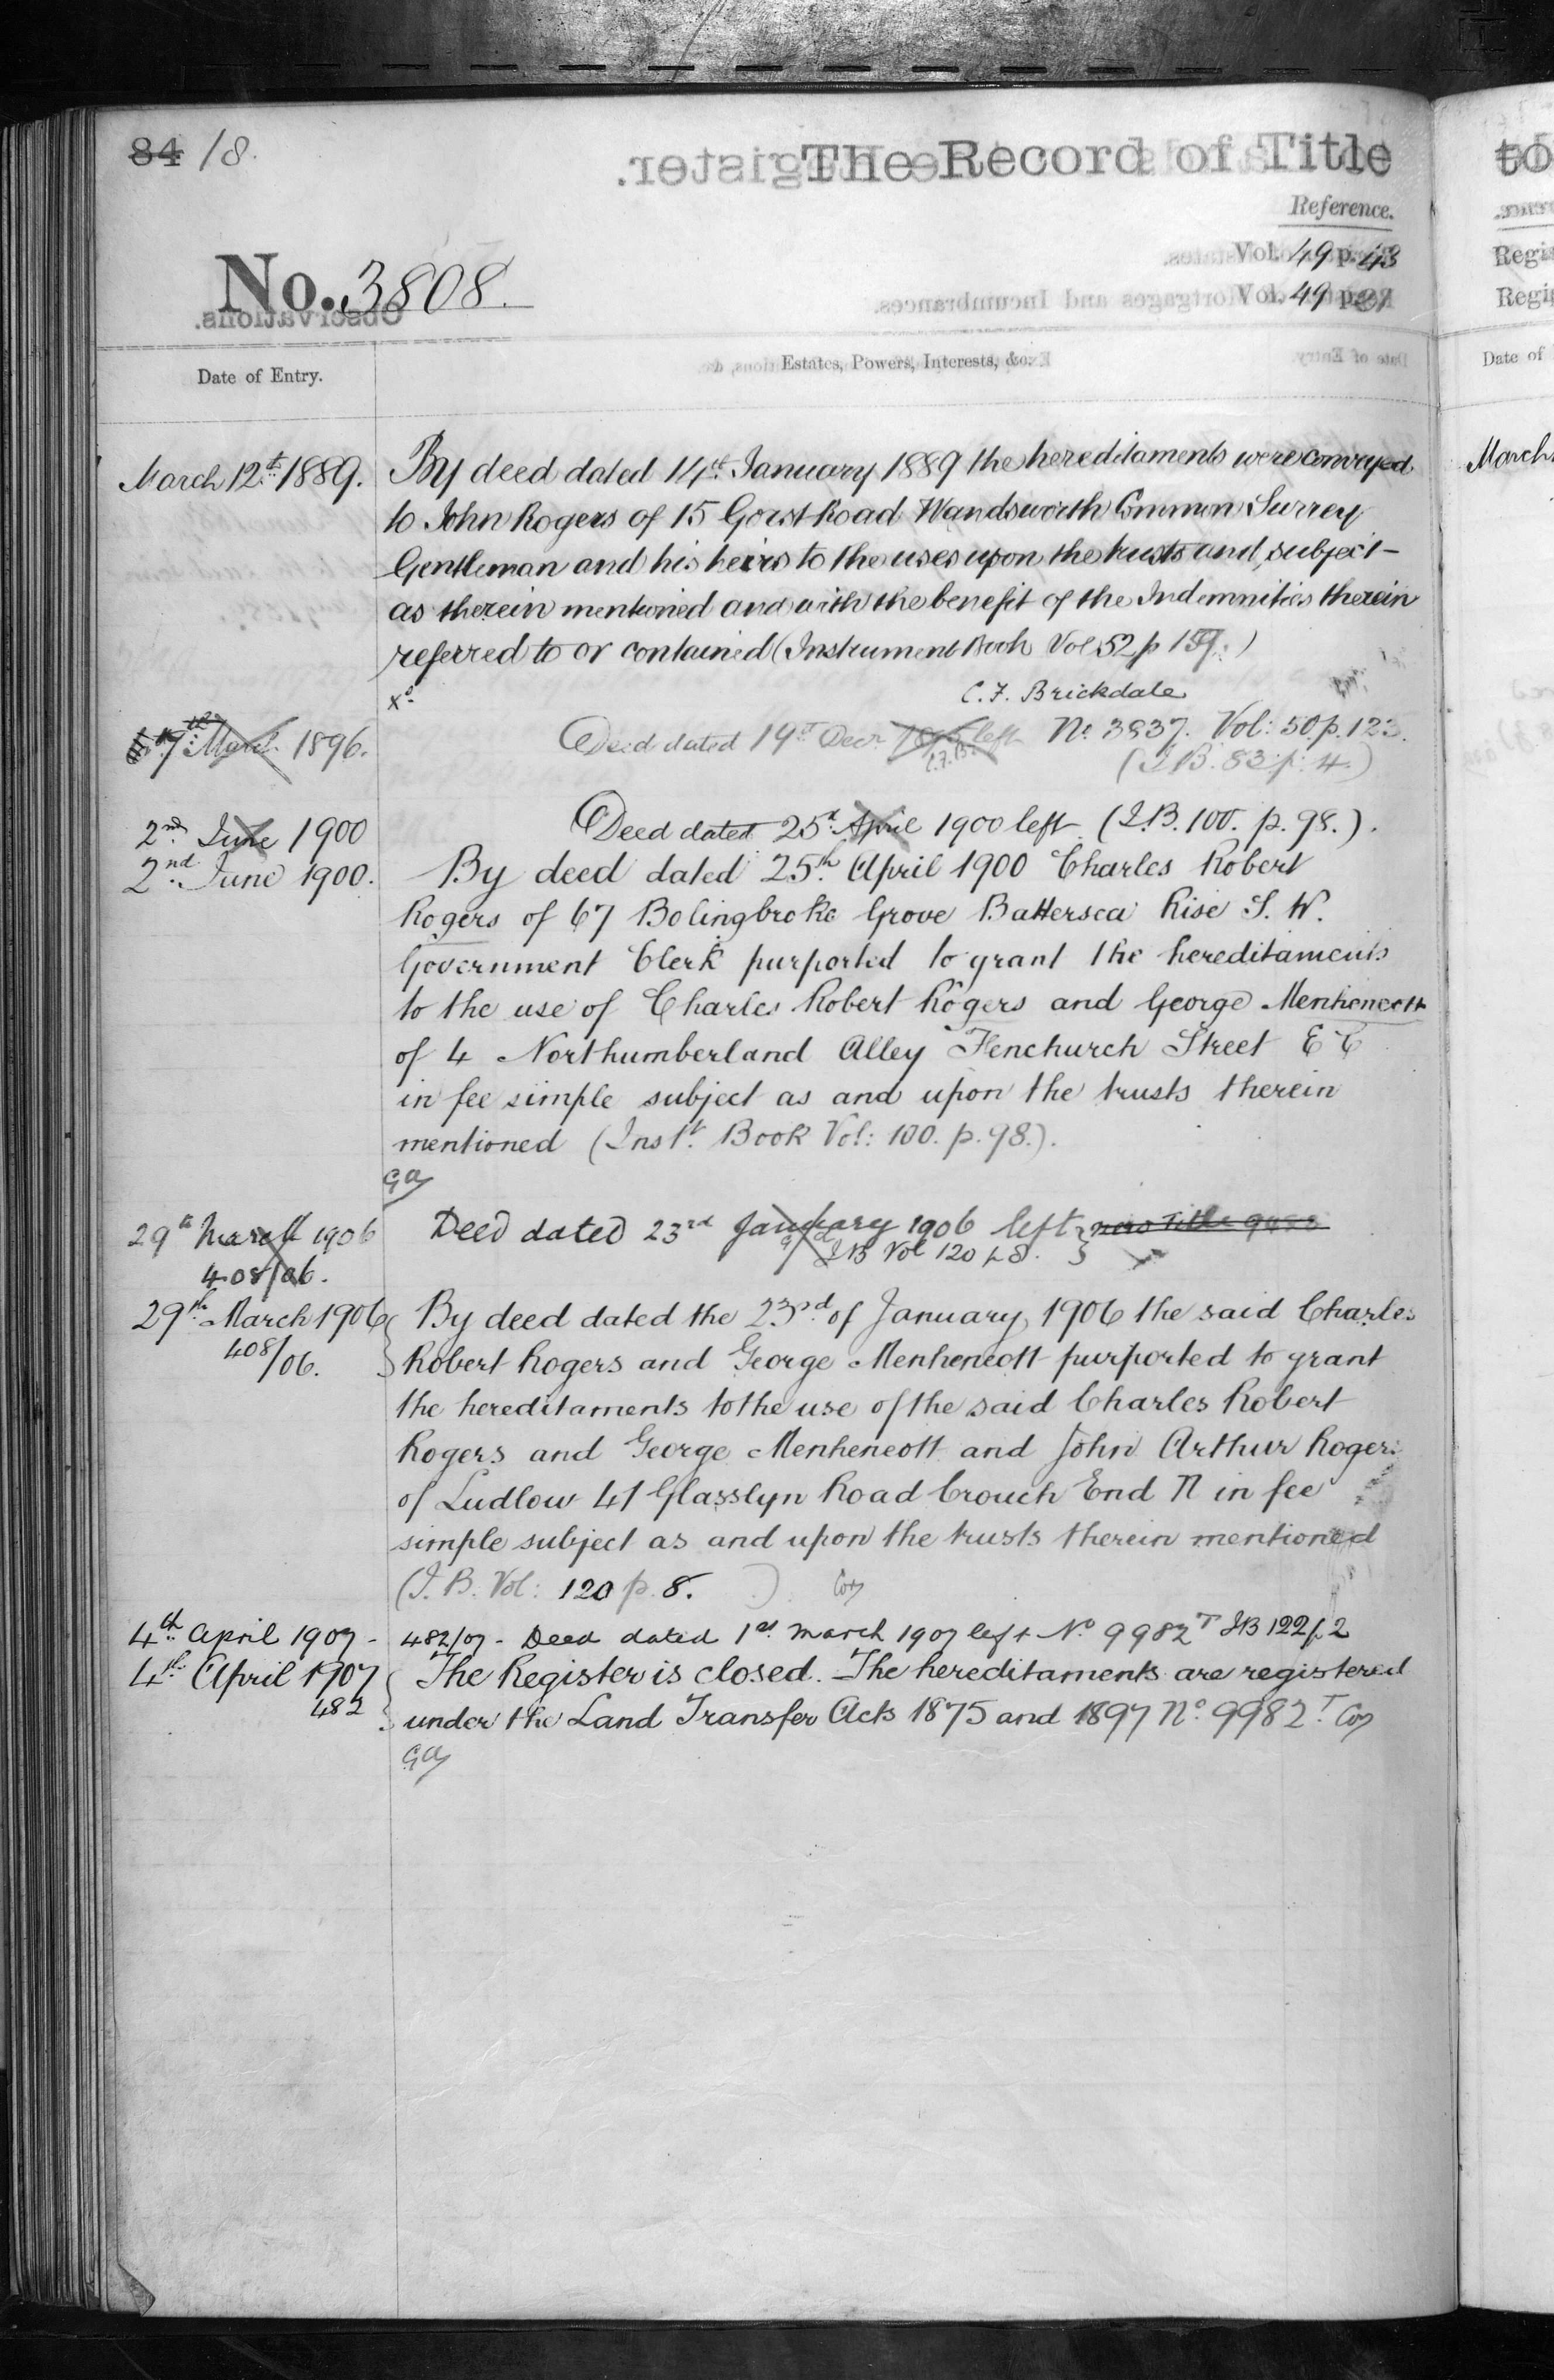 84 18.
The Record of Title
Reference.
No. 3808.
Vol. 49 p. 43
Vol. 49 p.
Date of Entry.
Estates, Powers, Interests, &c.
March 12th 1889. By deed dated 14th January 1889 the hereditaments were conveyed
to John Rogers of 15 Gorst Road Wandsworth Common Surrey
Gentleman and his heirs to the uses upon the trusts and subject
as therein mentioned and with the benefit of the Indemnities therein
referred to or contained (Instrument Book Vol 52 p )
C. F. Brickdale
March 1896. Deed dated 19th Decr left No. 3837. Vol: 50 p. 123.
C.F.B. (I.B. 83 p. 4.)
2nd June 1900 Deed dated 25th April 1900 left (I.B. 100. p. 98.).
2nd June 1900. By deed dated 25th April 1900 Charles Robert
Rogers of 67 Bolingbroke Grove Battersea Rise S. W.
Government Clerk purported to grant the hereditaments
to the use of Charles Robert Rogers and George Menheneott
of 4 Northumberland Alley Fenchurch Street E C
in fee simple subject as and upon the trusts therein
mentioned (Inst. Book Vol: 100. p. 98.).
29th March 1906 Deed dated 23rd January 1906 left
408/06. IB Vol 120 p 8.
29th March 1906 By deed dated the 23rd of January, 1906 the said Charles
408/06. Robert Rogers and George Menheneott purported to grant
the hereditaments to the use of the said Charles Robert
Rogers and George Menheneott and John Arthur Rogers
of Ludlow 41 Glasslyn Road Crouch End N in fee
simple subject as and upon the trusts therein mentioned
(I. B. Vol: 120 p. 8. )
4th April 1907 - 482/07 - Deed dated 1st March 1907 left No 9982T IB 122 p 2
4th April 1907 The Register is closed. The hereditaments are registered
482 under the Land Transfer Acts 1875 and 1897 No. 9982T.
to
Regis
Regi
Date of
March